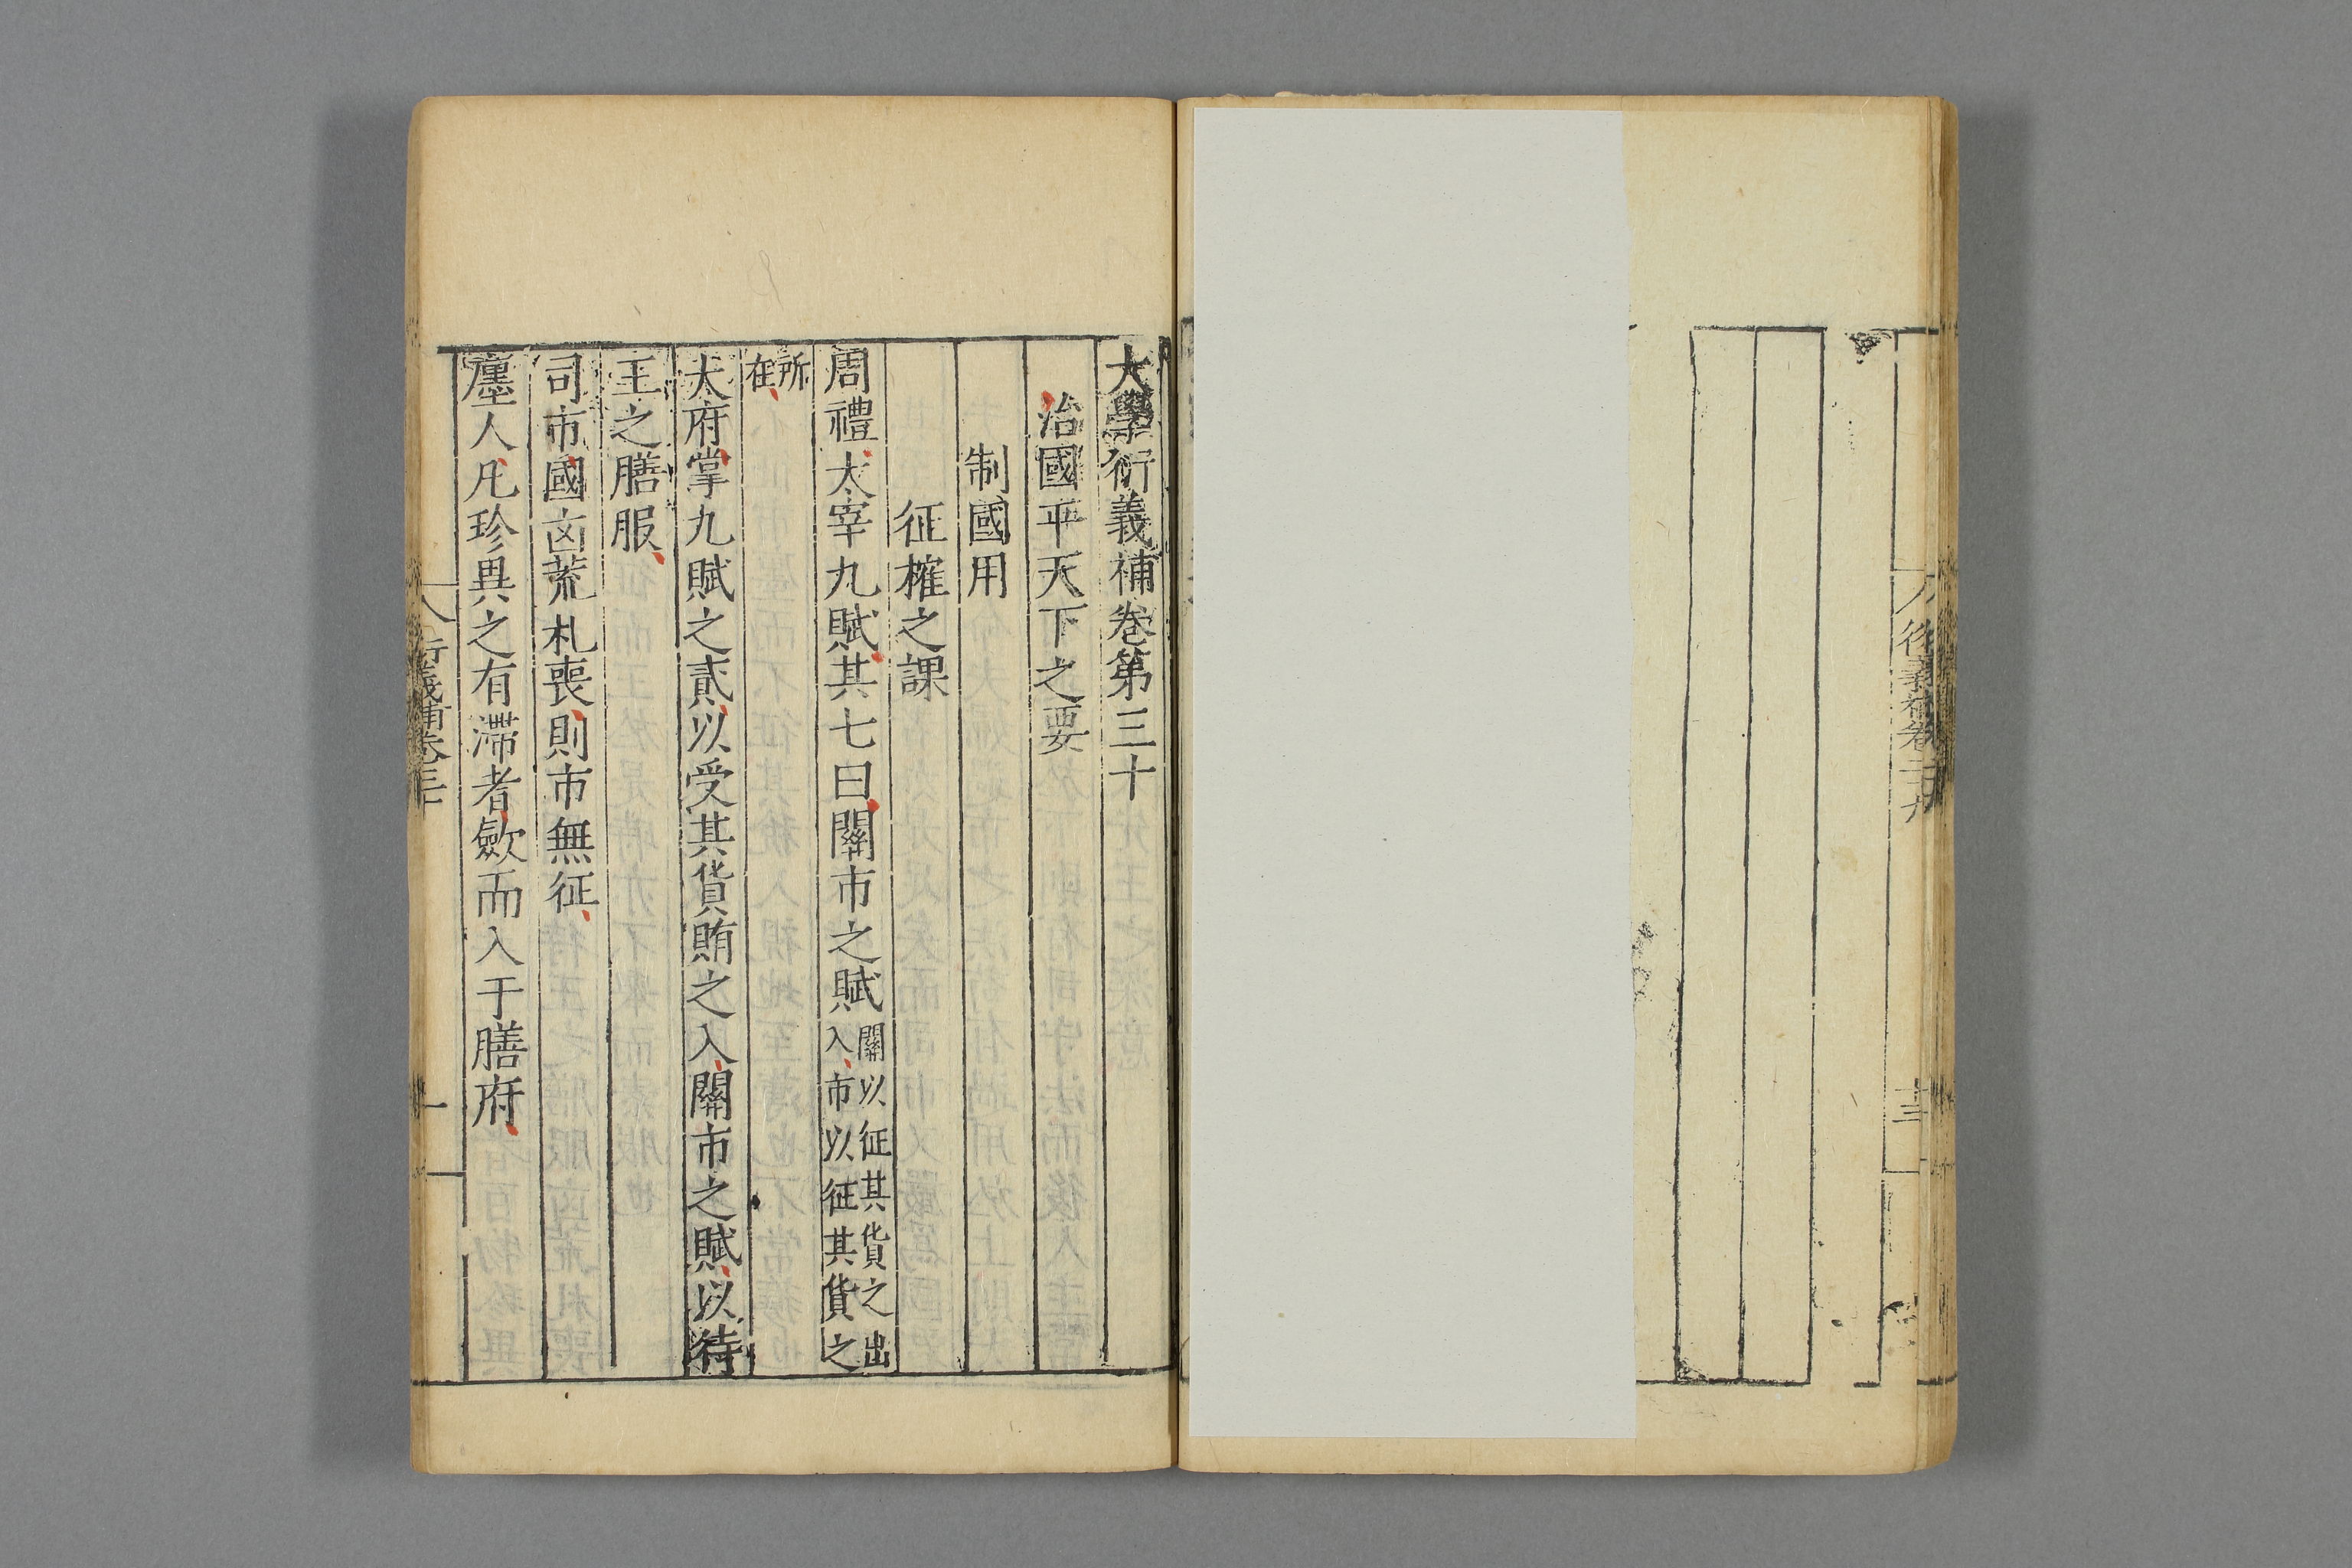 大學衍義補卷第三十
治國平天下之要
制國用
征榷之課
周禮太宰九賦其七曰關市之賦關以征其貨之出入市以征其貨之
所在
太府掌九賦之貳以受其貨賄之入關市之賦以待
王之膳服
司市國凶荒札喪則市無征
廛人凡珍異之有滯者歛而入于膳府
衍義補卷三十